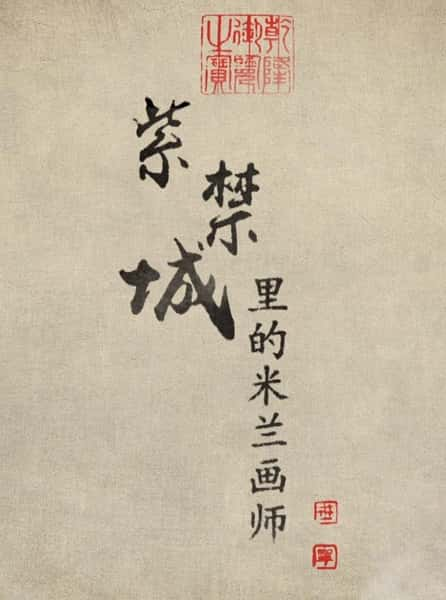 乾隆
御覽
之寶
紫禁城
里的米兰画师
世
寧